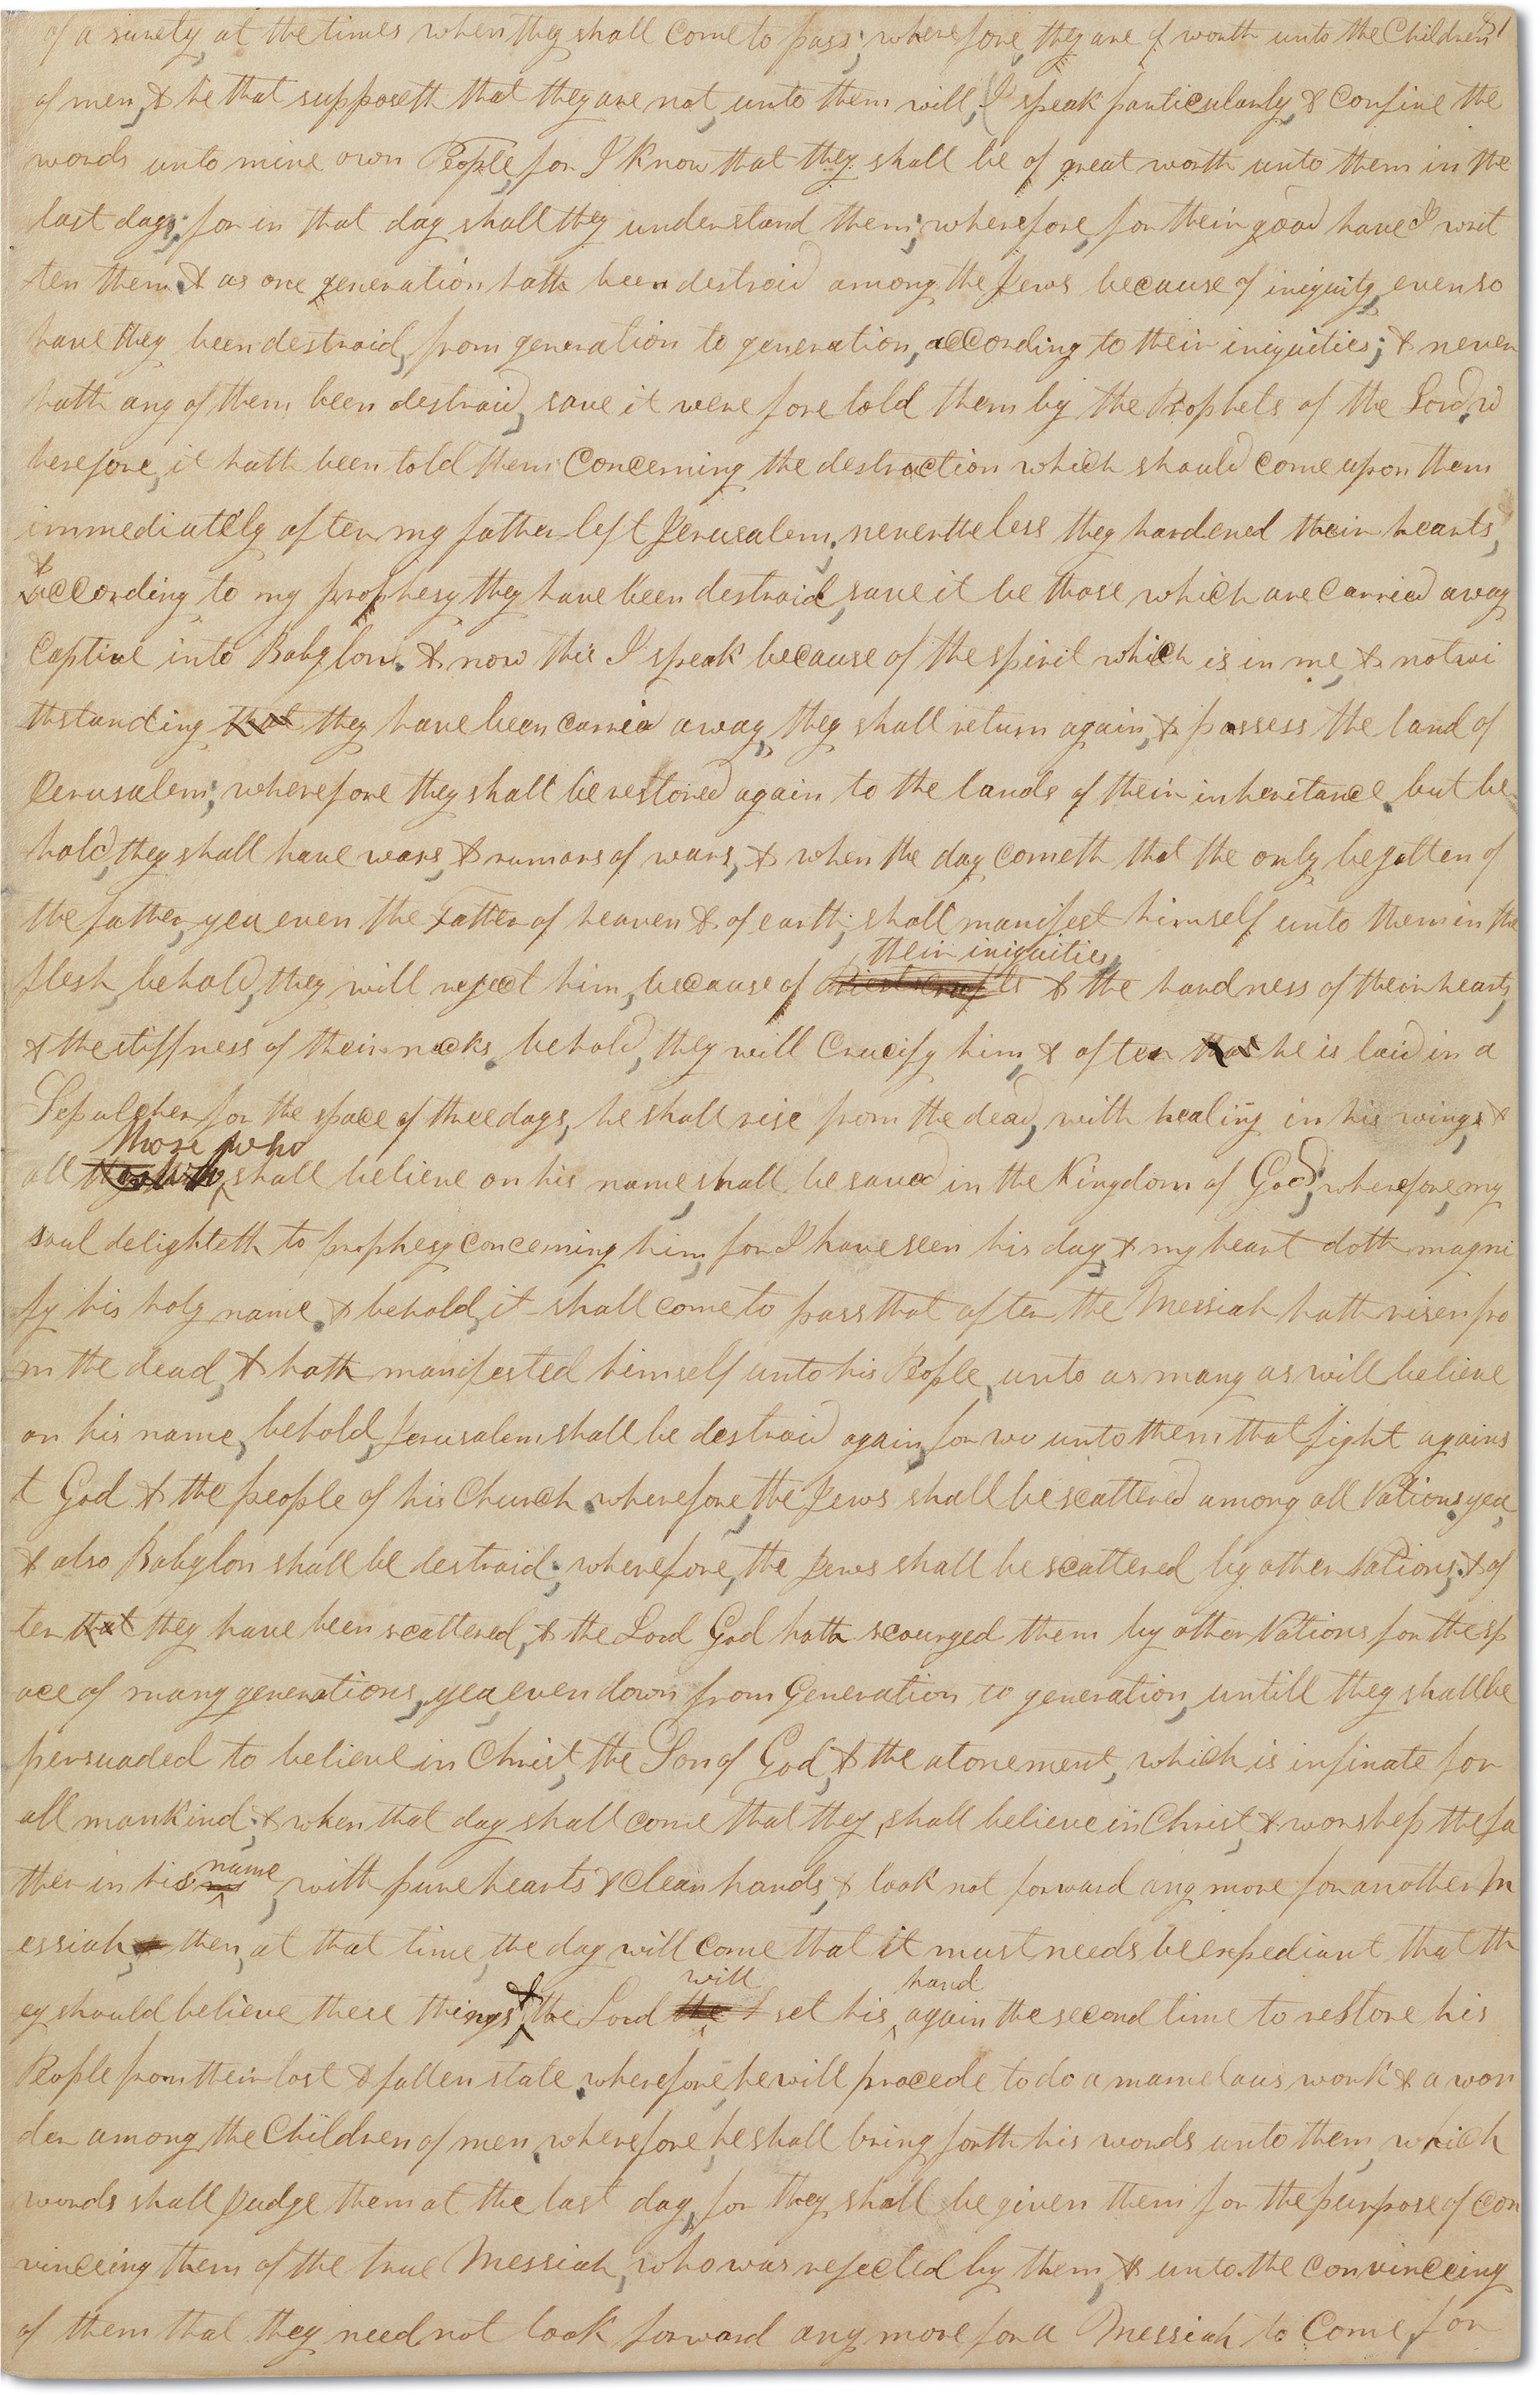 of a surety, at the times when they shall come to pass; wherefore, they are of worth unto the Children 81
of men, & he that supposeth that they are not, unto them will, I speak particularly, & confine the
words unto mine own People, for I know that they shall be of great worth unto them in the
last days; for in that day shall they understand them; wherefore, for their good have I writ
ten them. & as one generation hath been destroid among the Jews because of iniquity, even so
have they been destroid, from generation to generation, according to their iniquities; & never
hath any of them been destroid, save it were fore told them by the Prophets of the Lord. w
herefore, it hath been told them concerning the destruction which should come upon them
immediately after my father left Jerusalem, nevertheless they hardened their hearts,
&
according to my prophesy they have been destroid, save it be those which are carried away
captive into Babylon. & now this I speak because of the spirit which is in me, & notwi
thstanding that they have been carried away, they shall return again, & possess the land of
Jerusalem; wherefore they shall be restored again to the lands of their inheritance. but be
hold, they shall have wars, & rumors of wars, & when the day cometh that the only begotten of
the father, yea even the Father of heaven & of earth; shall manifest himself unto them in the
their iniquities,
flesh, behold, they will reject him, because of & the hardness of their hearts,
& the stiffness of their necks. behold, they will crucify him, & after that he is laid in a
Sepulcher for the space of three days, he shall rise from the dead, with healing in his wings, &
those who
all shall believe on his name, shall be saved in the Kingdom of God; wherefore, my
soul delighteth to prophesy concerning him, for I have seen his day, & my heart doth magni
fy his holy name. & behold, it shall come to pass that after the Messiah hath risen fro
m the dead, & hath manifested himself unto his People, unto as many as will believe
on his name, behold, Jerusalem shall be destroid again, for wo unto them that fight agains
t God & the people of his Church. wherefore, the Jews shall be scattered among all Nations. yea,
& also Babylon shall be destroid; wherefore, the Jews shall be scattered by other Nations; & af
ter that they have been scattered, & the Lord God hath scourged them by other Nations for the sp
ace of many generations, yea, even down from Generation to generation, untill they shall be
persuaded to believe in Christ, the Son of God, & the atonement, which is infinate for
all mankind; & when that day shall come that they, shall believe in Christ, & worship the fa
name
ther in his, with pure hearts & clean hands, & look not forward any more for another M
essiah, & then, at that time, the day will come that it must needs be expediant that th
will hand
ey should believe these things & the Lord the set his again the second time to restore his
People from their lost & fallen state. wherefore, he will procede to do a marvelous work & a won
der among the Children of men. wherefore, he shall bring forth his words unto them, which
words shall judge them at the last day, for they shall be given them for the purpose of con
vinceing them of the true Messiah, who was rejected by them, & unto the convinceing
of them that they need not look forward any more for a Messiah to Come, for